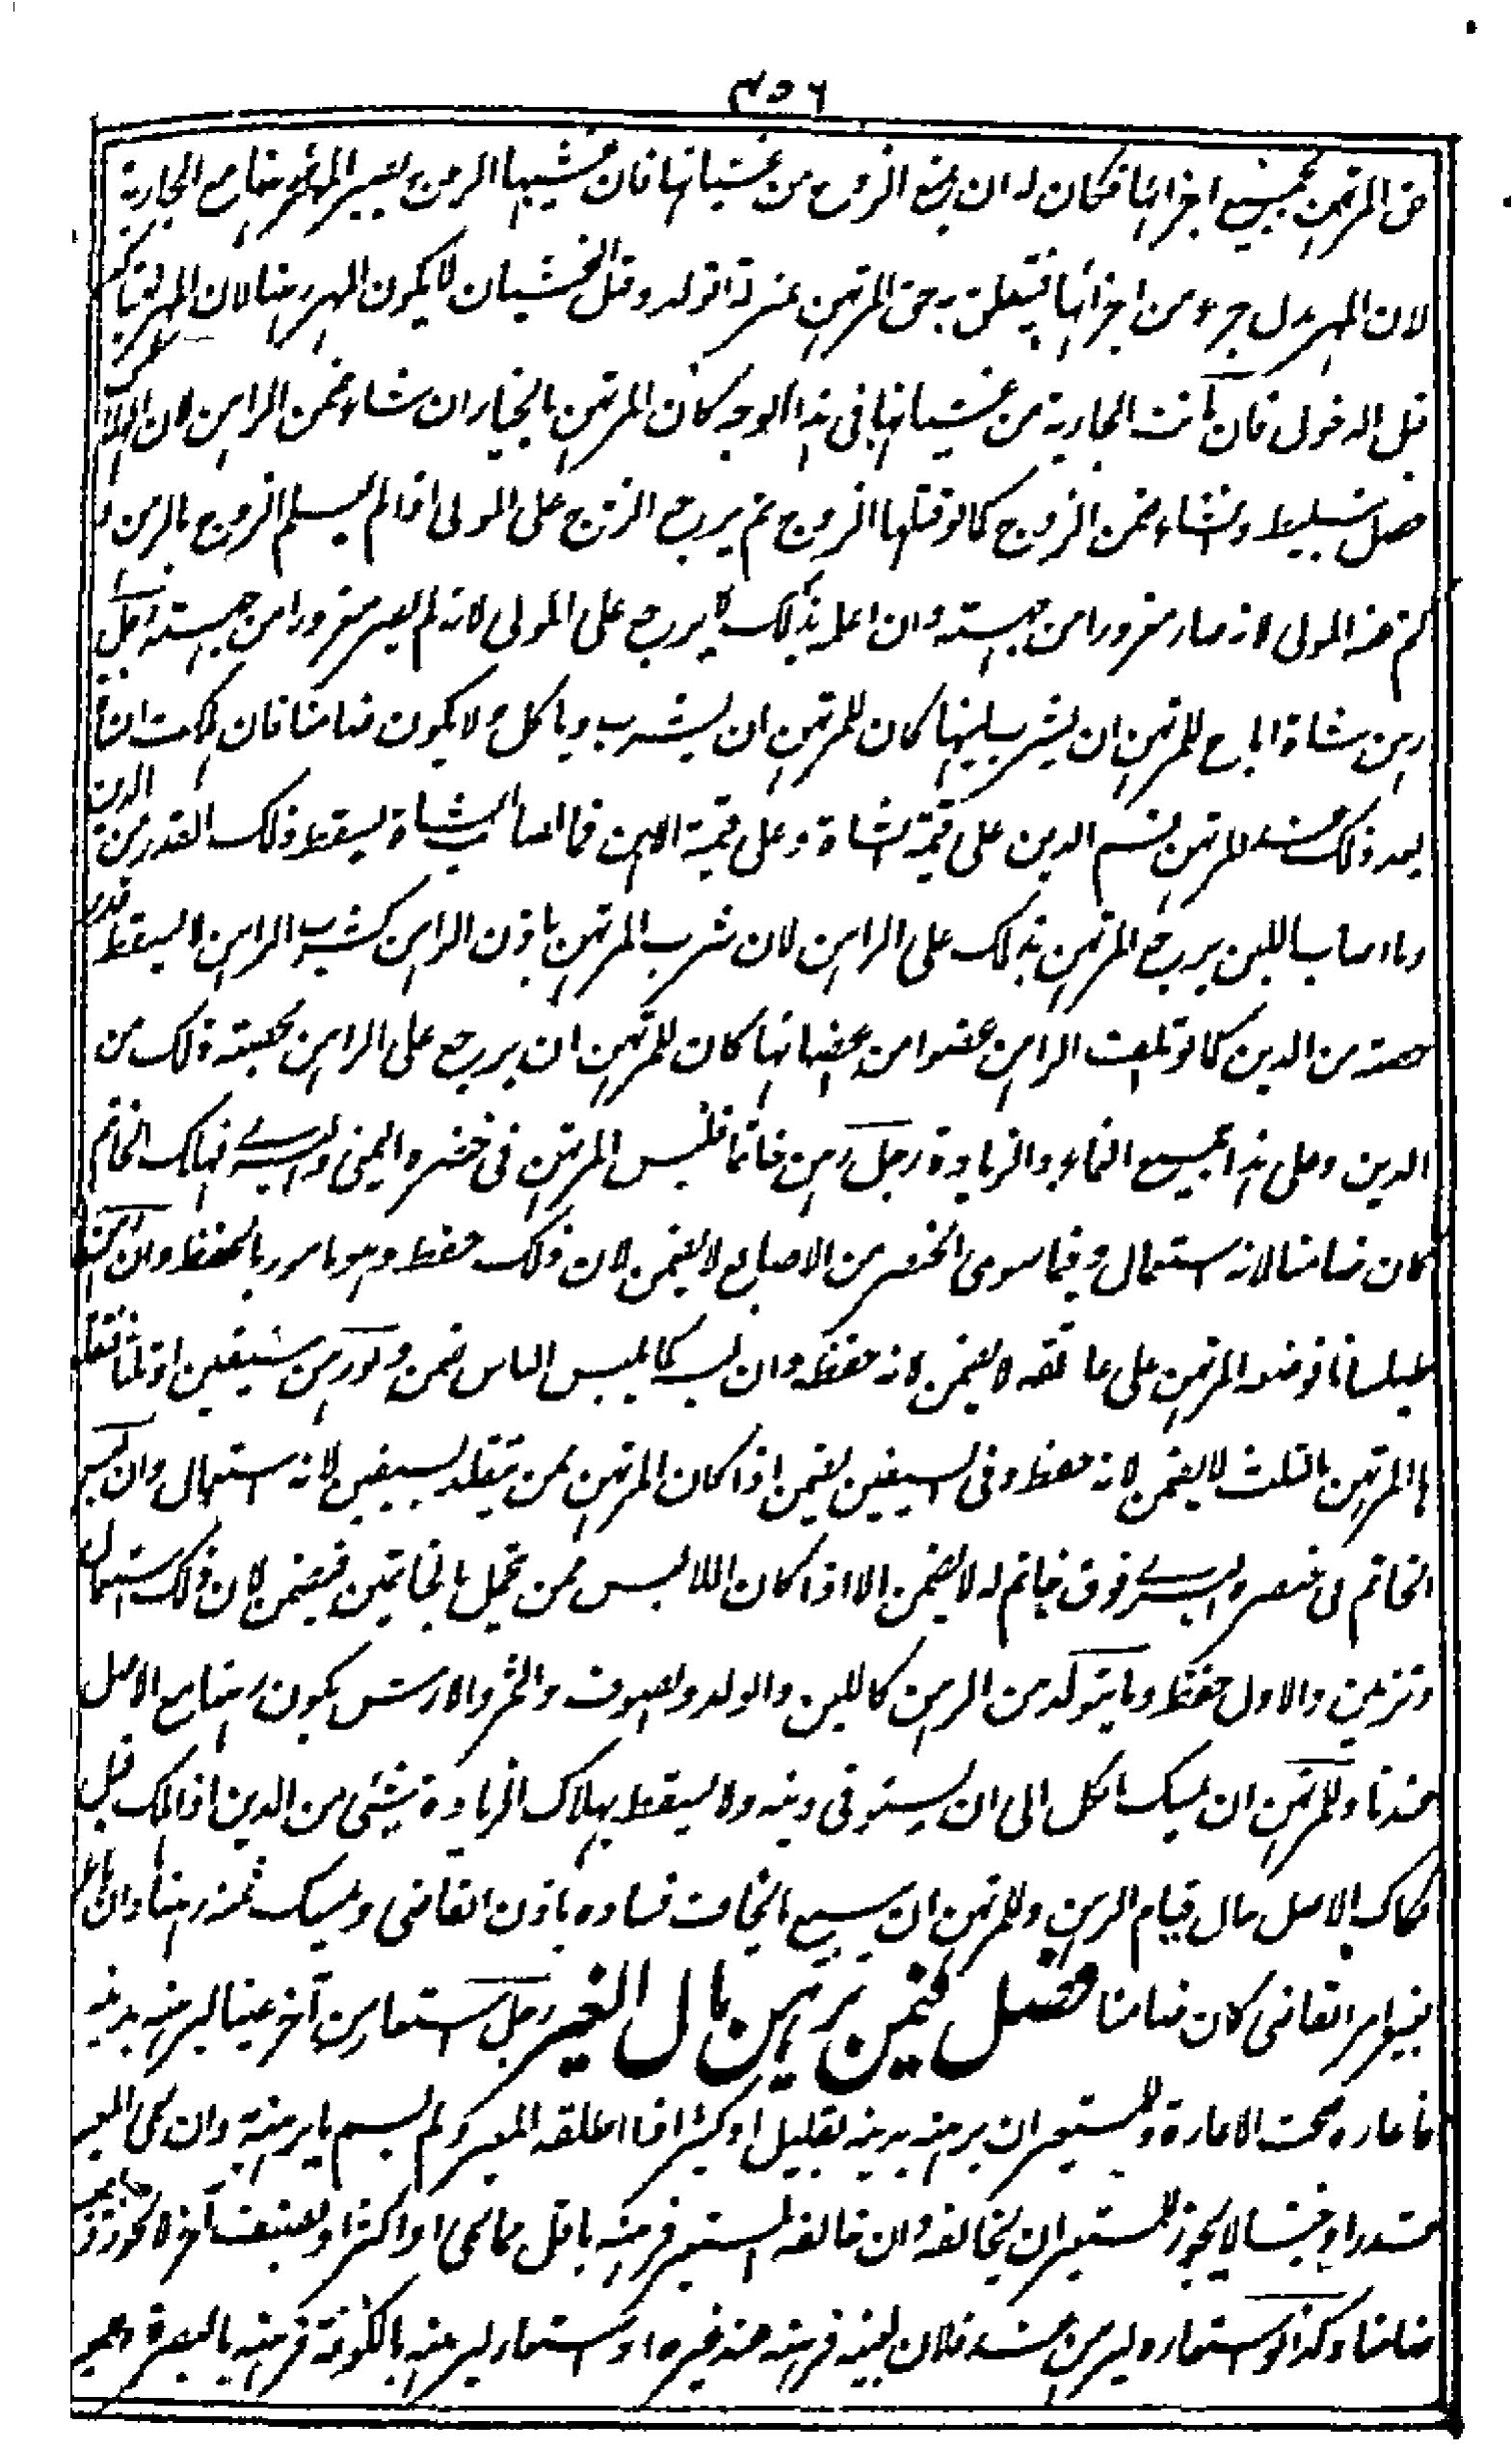 ٤٥٦
حق المرتهن بجميع اجزائها فكان له ان يمنع الزوج من غشيانها فان غشيها الزوج يصير المهر رهنا مع الجارية
لان المهر بدل جزء من اجزائها فيتعلق به حق المرتهن بمنزلة الولد وقبل الغشيان لا يكون المهر رهنا لان المهر
قبل الدخول فان ماتت الجارية من غشيانها فى هذا الوجه كان المرتهن بالخيار ان شاء ضمن الراهن لان
حصل بتسليط وان شاء ضمن الزوج كما لو قتلها الزوج ثم يرجع الزوج على المولى اذا لم يعلم الزوج بالرهن
كتم عنه المولى لانه صار مغرورا من جهته وان اعلمه بذلك لا يرجع على المولى لانه لم يصر مغرورا من جهته رجل
رهن شاة اباح للمرتهن ان يشرب لبنها كان للمرتهن ان يشرب وياكل ولا يكون ضامنا فان هلكت الشاة
بعد ذلك عند المرتهن قسم الدين على قيمة الشاة وعلى قيمة اللبن فما اصاب الشاة يسقط ذلك القدر من الدين
وما اصاب اللبن يرجع المرتهن بذلك على الراهن لان شرب المرتهن باذن الراهن كشرب الراهن لا يسقط قدر
حصته من الدين كما لو تلفت الراهن عضوا من اعضائها كان للمرتهن ان يرجع على الراهن بحصته ذلك من
الدين وعلى هذا جميع النماء والزيادة رجل رهن خاتما فلبس المرتهن فى خنصره اليمنى او اليسرى فهلك الخاتم
كان ضامنا لانه استعمال وفيما سوى الخنصر من الاصابع لا يضمن لان ذلك حفظ وهو مامور بالحفظ وان
طيلسانا فوضعه المرتهن على عاتقه لا يضمن لانه حفظ وان لبس كما يلبس الناس ضمن ولو رهن سيفين او ثلثا فتقلد
ها المرتهن بالثلث لا يضمن لانه حفظ وفى السيفين يضمن اذا كان المرتهن ممن يتقلد بسيفين لانه استعمال وان لبس
الخاتم فى خنصره اليسرى فوق خاتم له لا يضمن الا اذا كان اللابس ممن يتجمل بالخاتمين فيضمن لان ذلك استعمال
وتزين والاول حفظ وما يتولد من الرهن كاللبن والولد والصوف والثمر والارش يكون رهنا مع الاصل
عندنا وللمرتهن ان يمسك الكل الى ان يستوفى دينه ولا يسقط بهلاك الزيادة شئ من الدين اذا هلك قبل
فكاك الاصل حال قيام الرهن وللمرتهن ان يبيع ما يخاف فساده باذن القاضى ويمسك ثمنه رهنا وان باع
بغير امر القاضى كان ضامنا فصل فيمن يرهن مال الغير رجل استعار من آخر عينا ليرهنه بدينه
فاعاره صحت الاعارة وللمستعير ان يرهنه بدينه بقليل او كثير اذا اطلقه المعير ولم يسم ما يرهنه به وان سمى المعير
قدرا او جنسا لا يجوز للمستعير ان يخالفه وان خالفه المستعير فرهنه باقل مما سمى او اكثر او بصنف آخر لا يجوز
ضامنا وكذا لو استعاره ليرهن عند فلان بعينه فرهنه عند غيره او استعار ليرهنه بالكوفة فرهنه بالبصرة